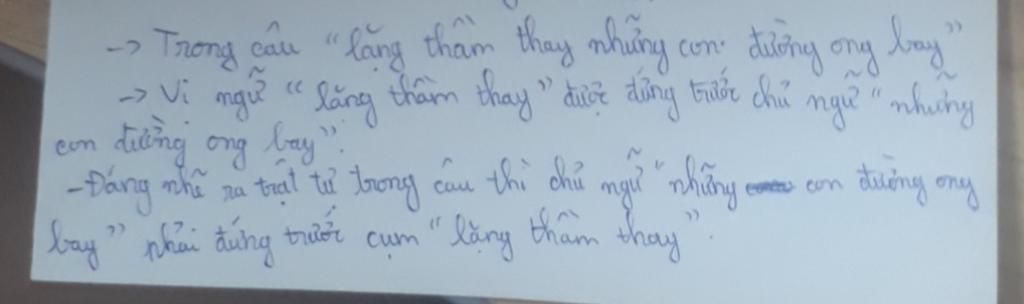 -> Trong câu "lặng thầm thay những con đường ong bay"
-> Vị ngữ "lặng thầm thay" được đứng trước chủ ngữ "những
con đường ong bay".
- Đáng nhẽ ra trật tự trong câu thì chủ ngữ "những con đường ong
bay" phải đứng trước cụm "lặng thầm thay".